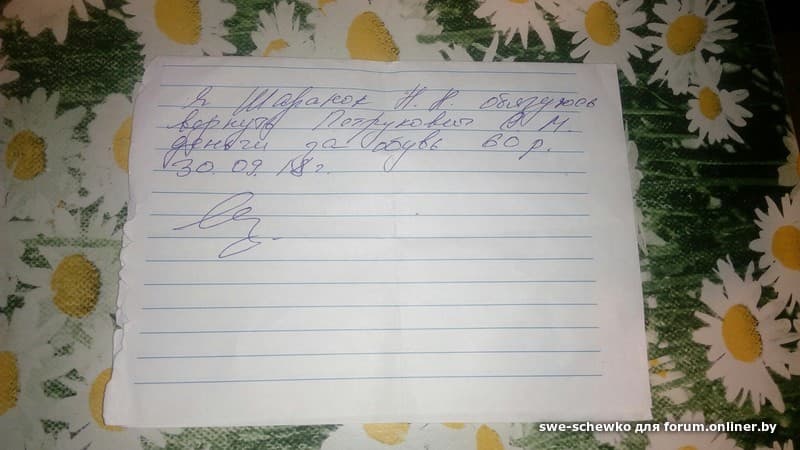 Я Шаранок Н. Н. обязуюсь
вернуть Петрукович В М.
деньги за обувь 60 р.
30. 09. 18 г.
swe-schewko для forum.onliner.by